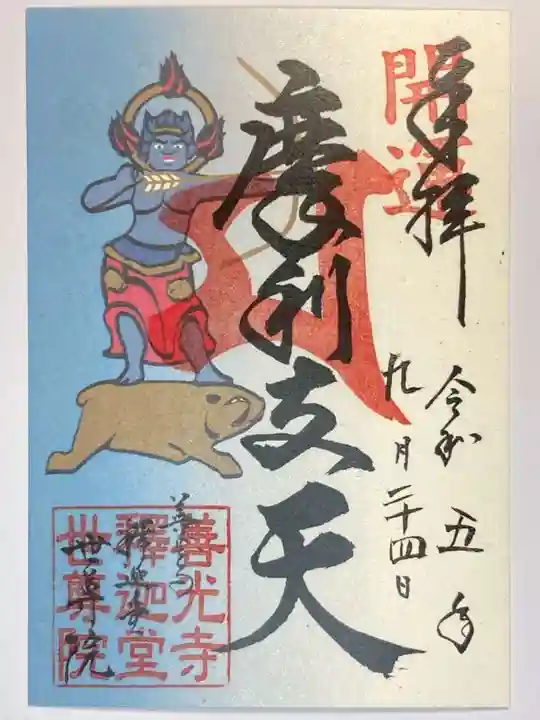 奉拝
開運
令和五年
九月二十四日
摩利支天
善光寺
釋迦堂
世尊院
善光寺
釋迦堂
世尊院